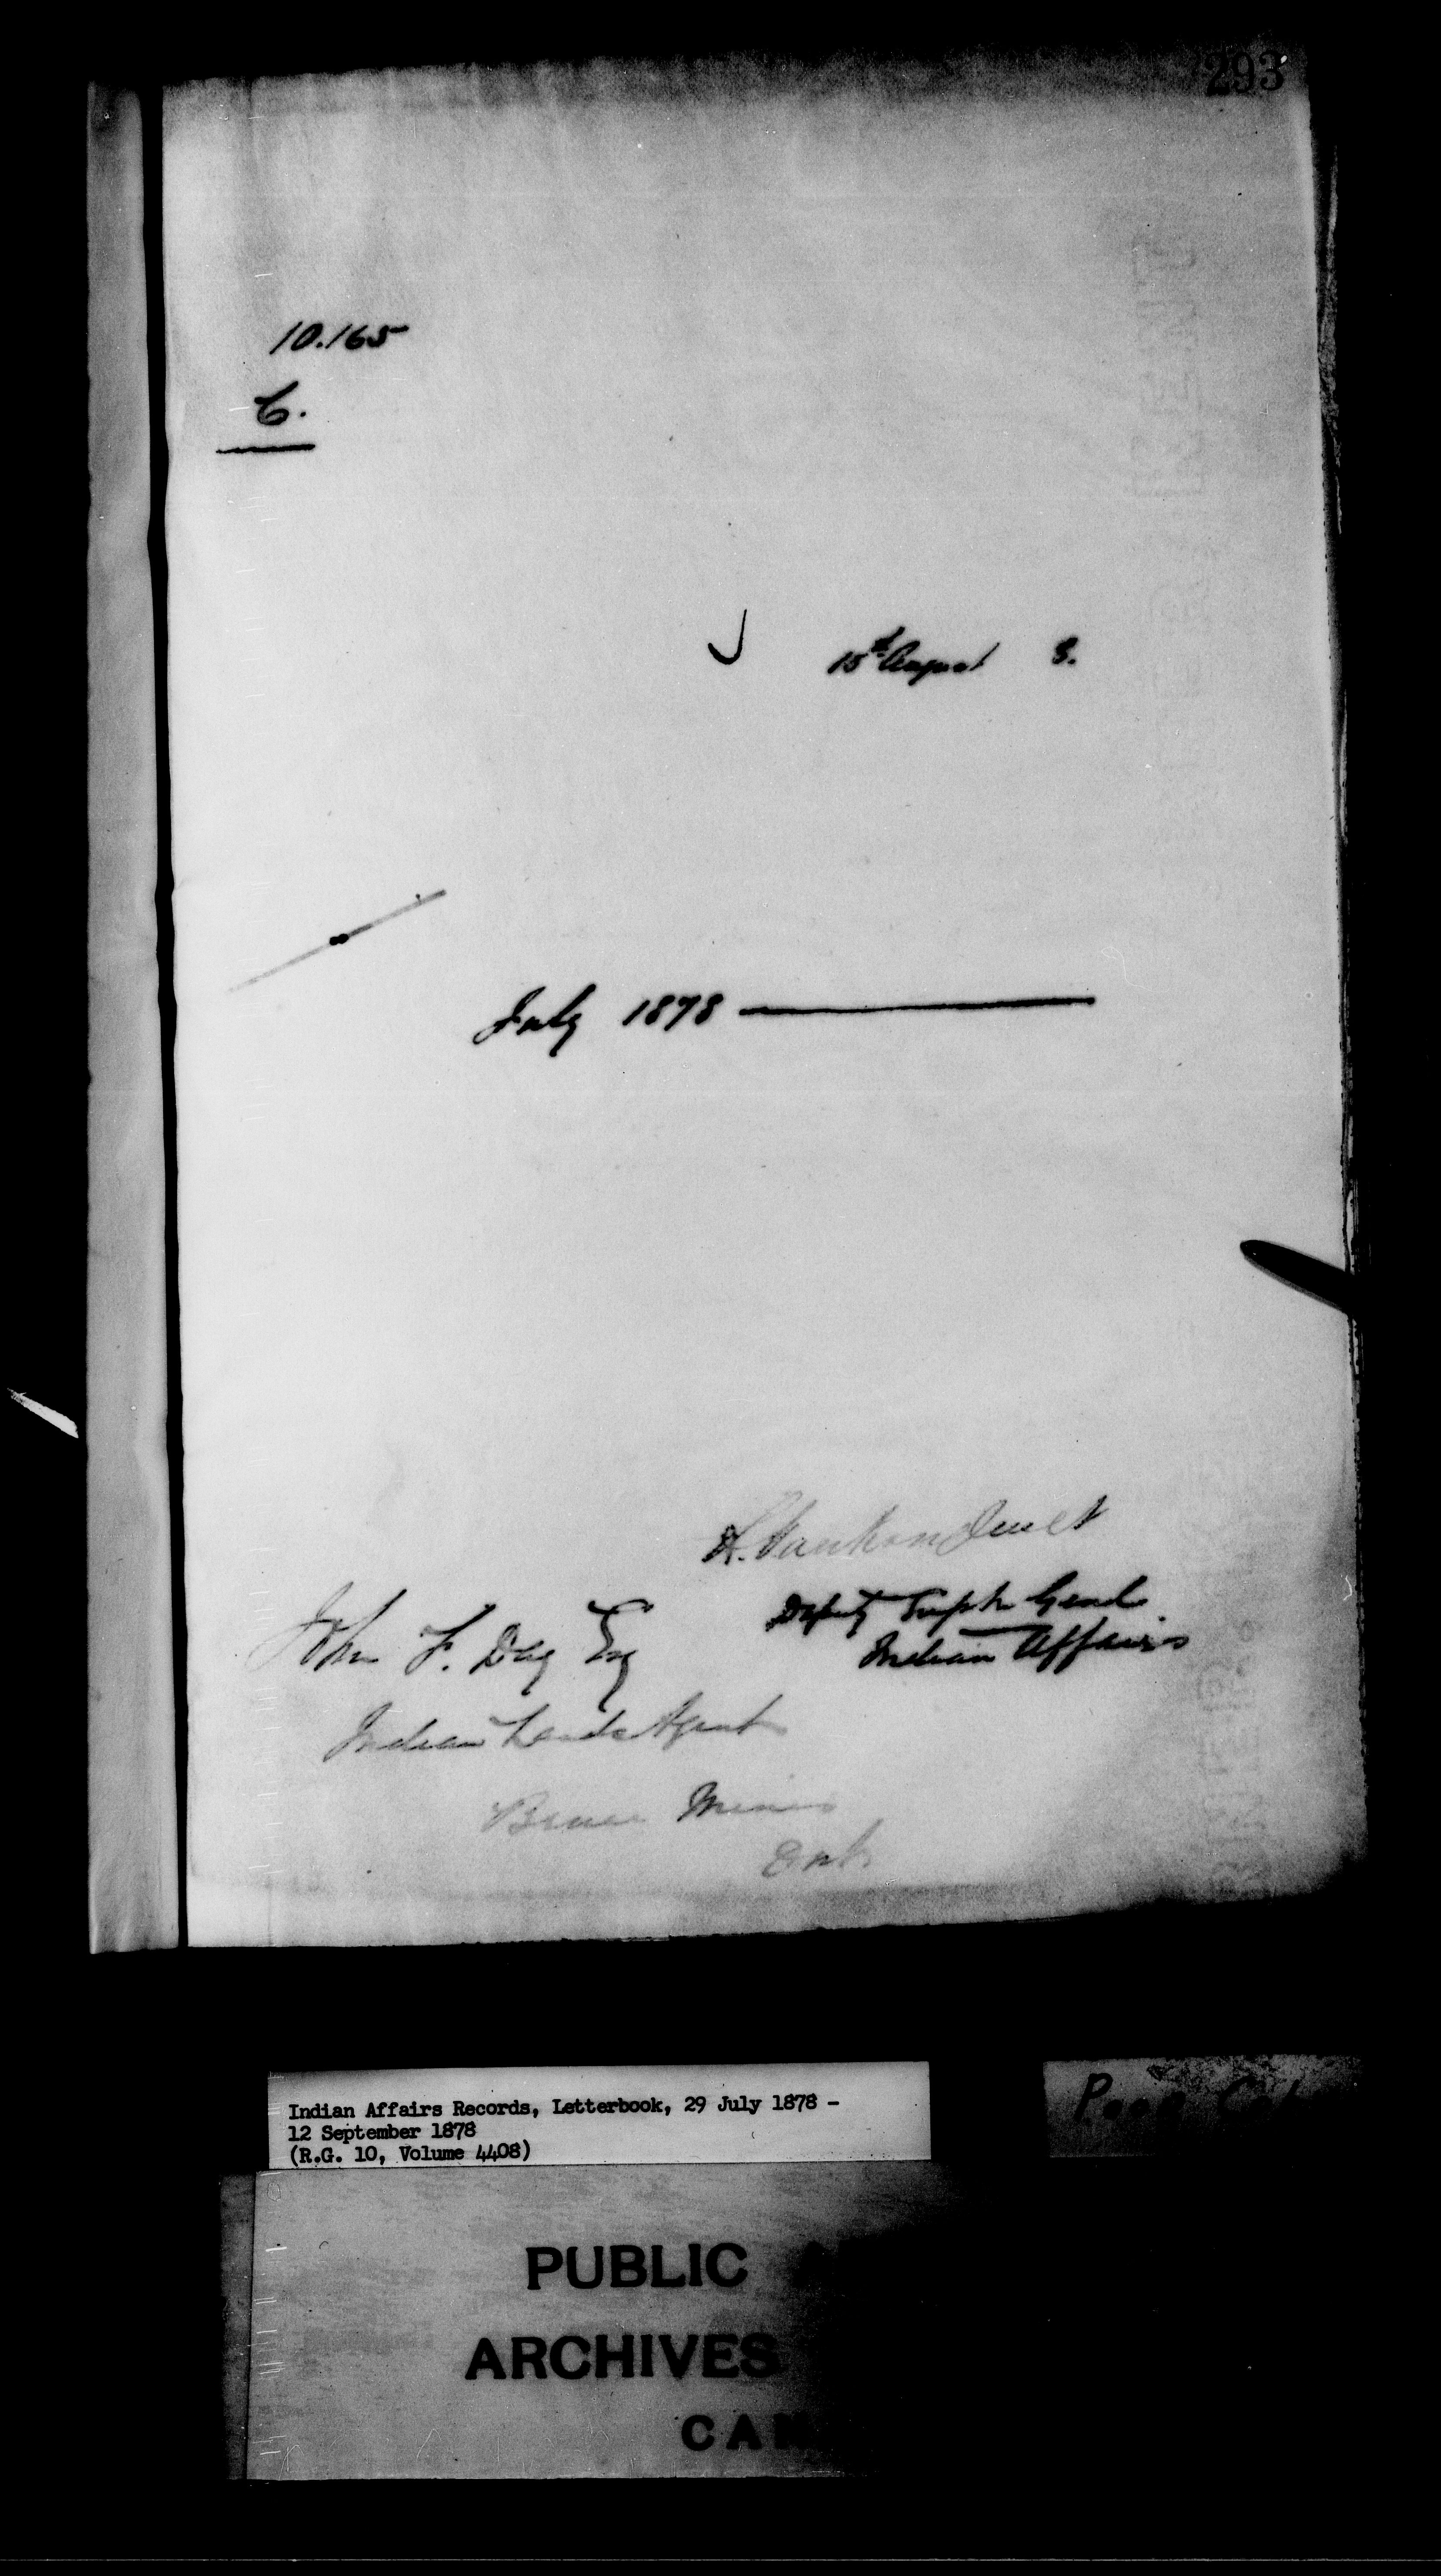 293
10.165
C.
15th August 8.
July 1878
L. Vankoughnet
Deputy Supt Genl
Indian Affairs
John F. Day Esq
Indian Lands Agent
Bruce Mines
Ont.
Indian Affairs Records, Letterbook, 29 July 1878 -
12 September 1878
(R.G. 10, Volume 4408)
PUBLIC
ARCHIVES
CAN